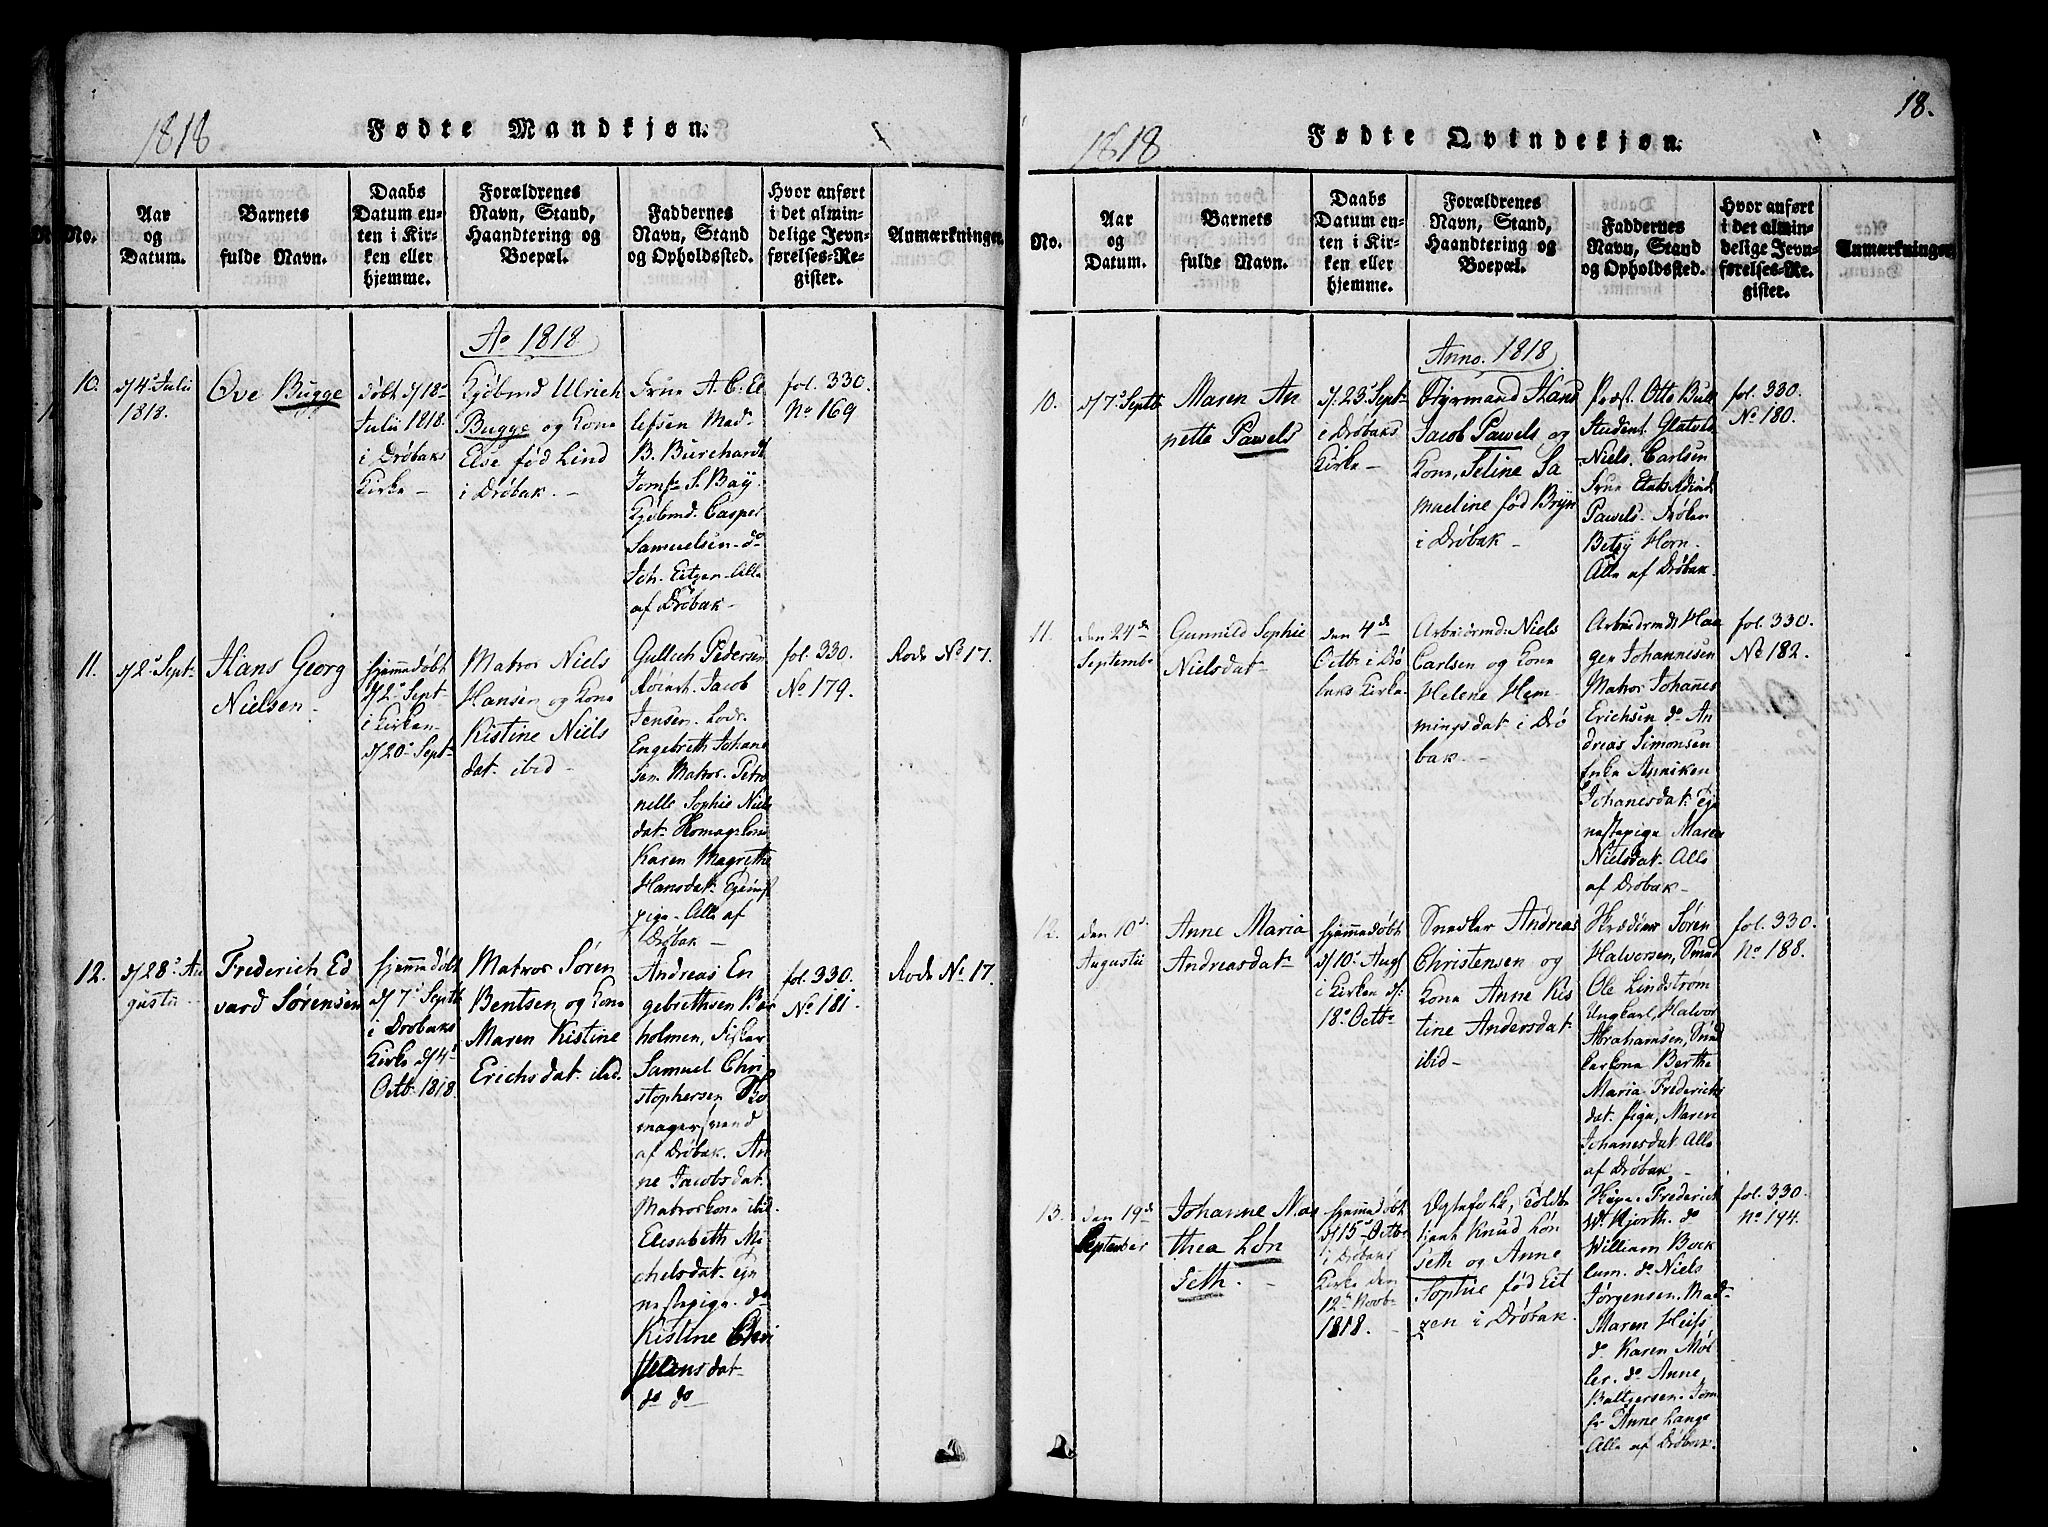 1818
Fødte Mandkjøn.
No.
Aar
og
Datum.
Barnets
fulde Navn.
Daabs
Datum en-
ten i Kir-
ken eller
hjemme.
Forældrenes
Navn, Stand,
Haandtering og
Boepæl.
Faddernes
Navn, Stand
og Opholdssted.
Hvor anført
i det almin-
delige Jevn-
førelses-Re-
gister.
Anmærkninger
Ao 1818
10.
d/4' Julii
1818.
Ove Bugge
døbt d/18'
Julii 1818.
i Drøbaks
Kirke -
Kjøbmd Ulrich
Bugge og Kona
Else fød Lind
i Drøbak. -
Frue A. C. El
lefsen Mad.
B. Burchardt
Jomfr S. Baÿ.
Kjøbmd. Casper
Samuelsen - do
Joh. Eitzen - Alle
af Drøbak -
fol. 330.
No 169
11.
d/2' Sept
Hans Georg
Nielsen -
hjemmedøbt
d/2' Sept
i Kirken
d/20' Sept
Matros Niels
Hansen og Kona
Kistine Niels
dat. ibid -
Gullich Pedersen
Jacob
Jensen. Lods.
Engebreth Johane
sen. Matros. Petro
nelle Sophie Niels
dat.
Karen Magrethe
Hansdat.
pige - Alle af
Drøbak -
fol. 330.
No 179.
Rode No 17.
12.
d/28' Au
gustii -
Frederich Ed
vard Sørensen
hjemmedøbt
d/7' Septb
i Drøbaks
Kirke d/4'
Octb. 1818.
Matros Søren
Bentsen og Kona
Maren Kistine
Erichsdat. ibid.
Andreas En
gebrethsen
holmen, Fisker
Samuel Chri
stophersen
magersvend
af Drøbak. An
ne Jacobsdat.
Matroskone ibid.
Elisabeth Mi
chelsdat. Tje
nestepige. do
Kistine Chri
stensdat
do do
fol. 330.
No 181.
Rode No 17.
18.
1818
Fødte Qvindekjøn.
No.
Aar
og
Datum.
Barnets
fulde Navn.
Daabs
Datum en-
ten i Kir-
ken eller
hjemme.
Forældrenes
Navn, Stand,
Haandtering og
Boepæl.
Faddernes
Navn, Stand
og Opholdssted.
Hvor anført
i det almin-
delige Jevn-
førelses-Re-
gister.
Anmærkninger
Anno. 1818
10.
d/7' Septb
Maren An
nette Pawels
d/. 23' Sept
i Drøbaks
Kirke -
Styrmand Hans
Jacob Pawels og
Kone, Seline Sa
maeline fød Bryn
i Drøbak -
Præst. Otto Bull
Student
Niels. Carlsen
Frue
Pawels. Frøken
Betsÿ Horn -
Alle af Drøbak.
fol. 330.
No 180.
11.
den 24de
Septembr
Gunnild Sophie
Nielsdat -
den 4de
Octb i Drø
baks Kirke.
Arbeidsmd. Niels
Carlsen og Kona
Helene Hem
mingsdat i Drø
bak -
Arbeidsmd. Haa
gen Johannesen
Matros Johanes
Erichsen do An
dreas Simonsen
Enke Anniken
Johanesdat. Tje
nestepige Maren
Nielsdat - Alle
af Drøbak -
fol. 330.
No 182.
12.
den 10de
Augustii
Anne Maria
Andreasdat -
hjemmedøbt
d/10' Aug
i Kirken d/:
18' Octb
Snedker Andreas
Christensen og
Kone Anne Kis
tine Andersdat
ibid -
Skræder Søren
Halvorsen, Smed
Ole Lindstrøm
Ungkarl, Halvor
Abrahamsen, Sned
kerkone Berthe
Maria Frederichs
dat. Pige, Maren
Johanesdat Alle
af Drøbak -
fol. 330.
No 188.
13.
den 19de
September
Johanne Ma
thea Løn
seth. -
hjemmedøbt
d/15' Octb
i Drøbaks
Kirke den
12te Novb
1818. -
Ægtefolk, Toldbe
tjent Knud Løn
seth og Anne
Sophie fød Eit
zen i Drøbak
Frederich
W. Kjorth. do
William Bock
lum. do Niels
Jørgensen. Mad.
Maren
do Karen Møl
ler. do Anne
Baltzersen. Jom
fr Anne Lange
Alle af Drøbak.
fol. 330.
No 194.